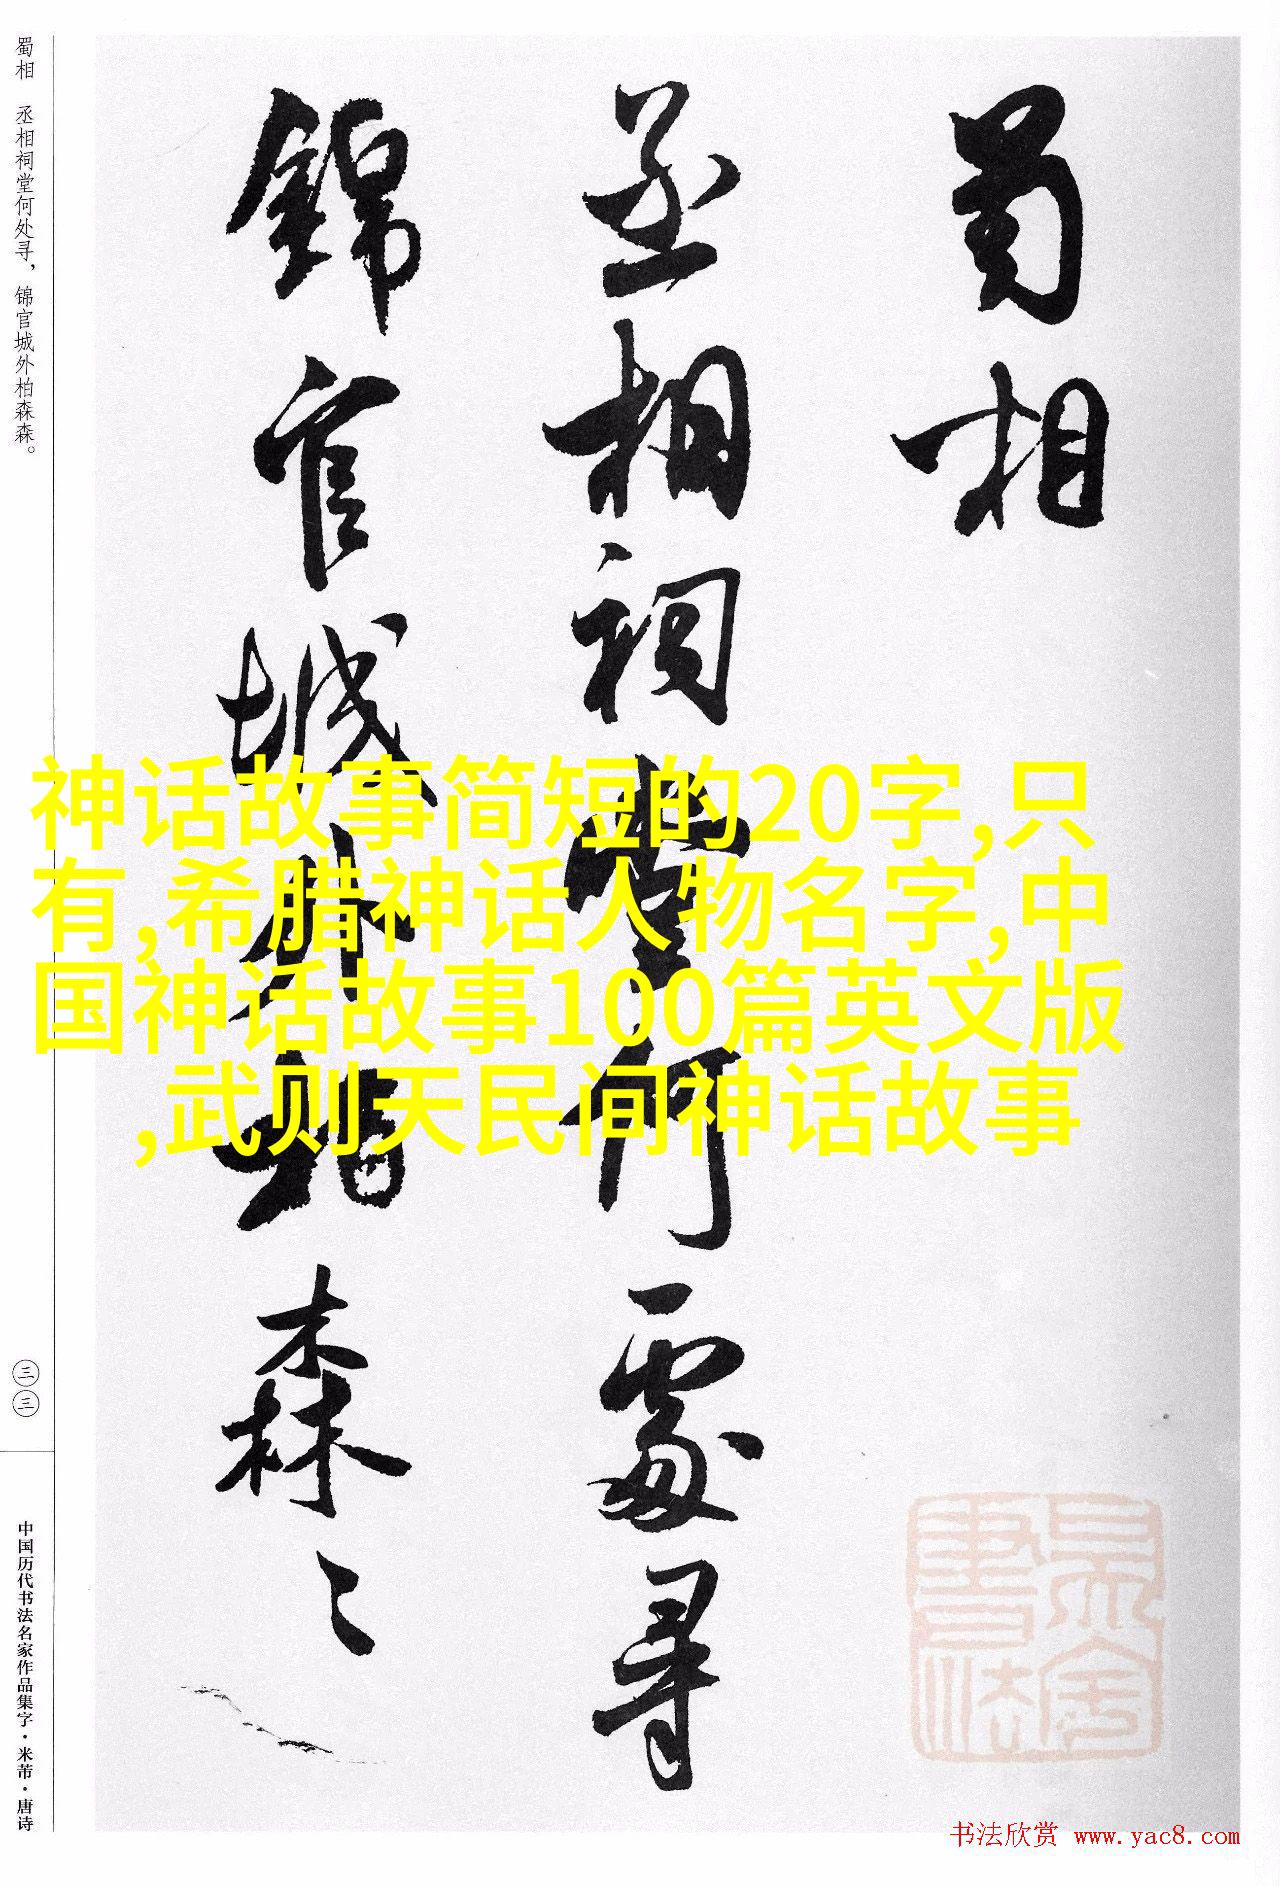 蜀相
丞相祠堂何處尋
錦官城外柏森々
蜀相 丞相祠堂何处寻，锦官城外柏森森。
三三
中国历代书法名家作品集字·米芾·唐诗
神话故事简短的20字,只
有,希腊神话人物名字,中
国神话故事100篇英文版
,武则天民间神话故事
书法欣赏 www.yac8.com